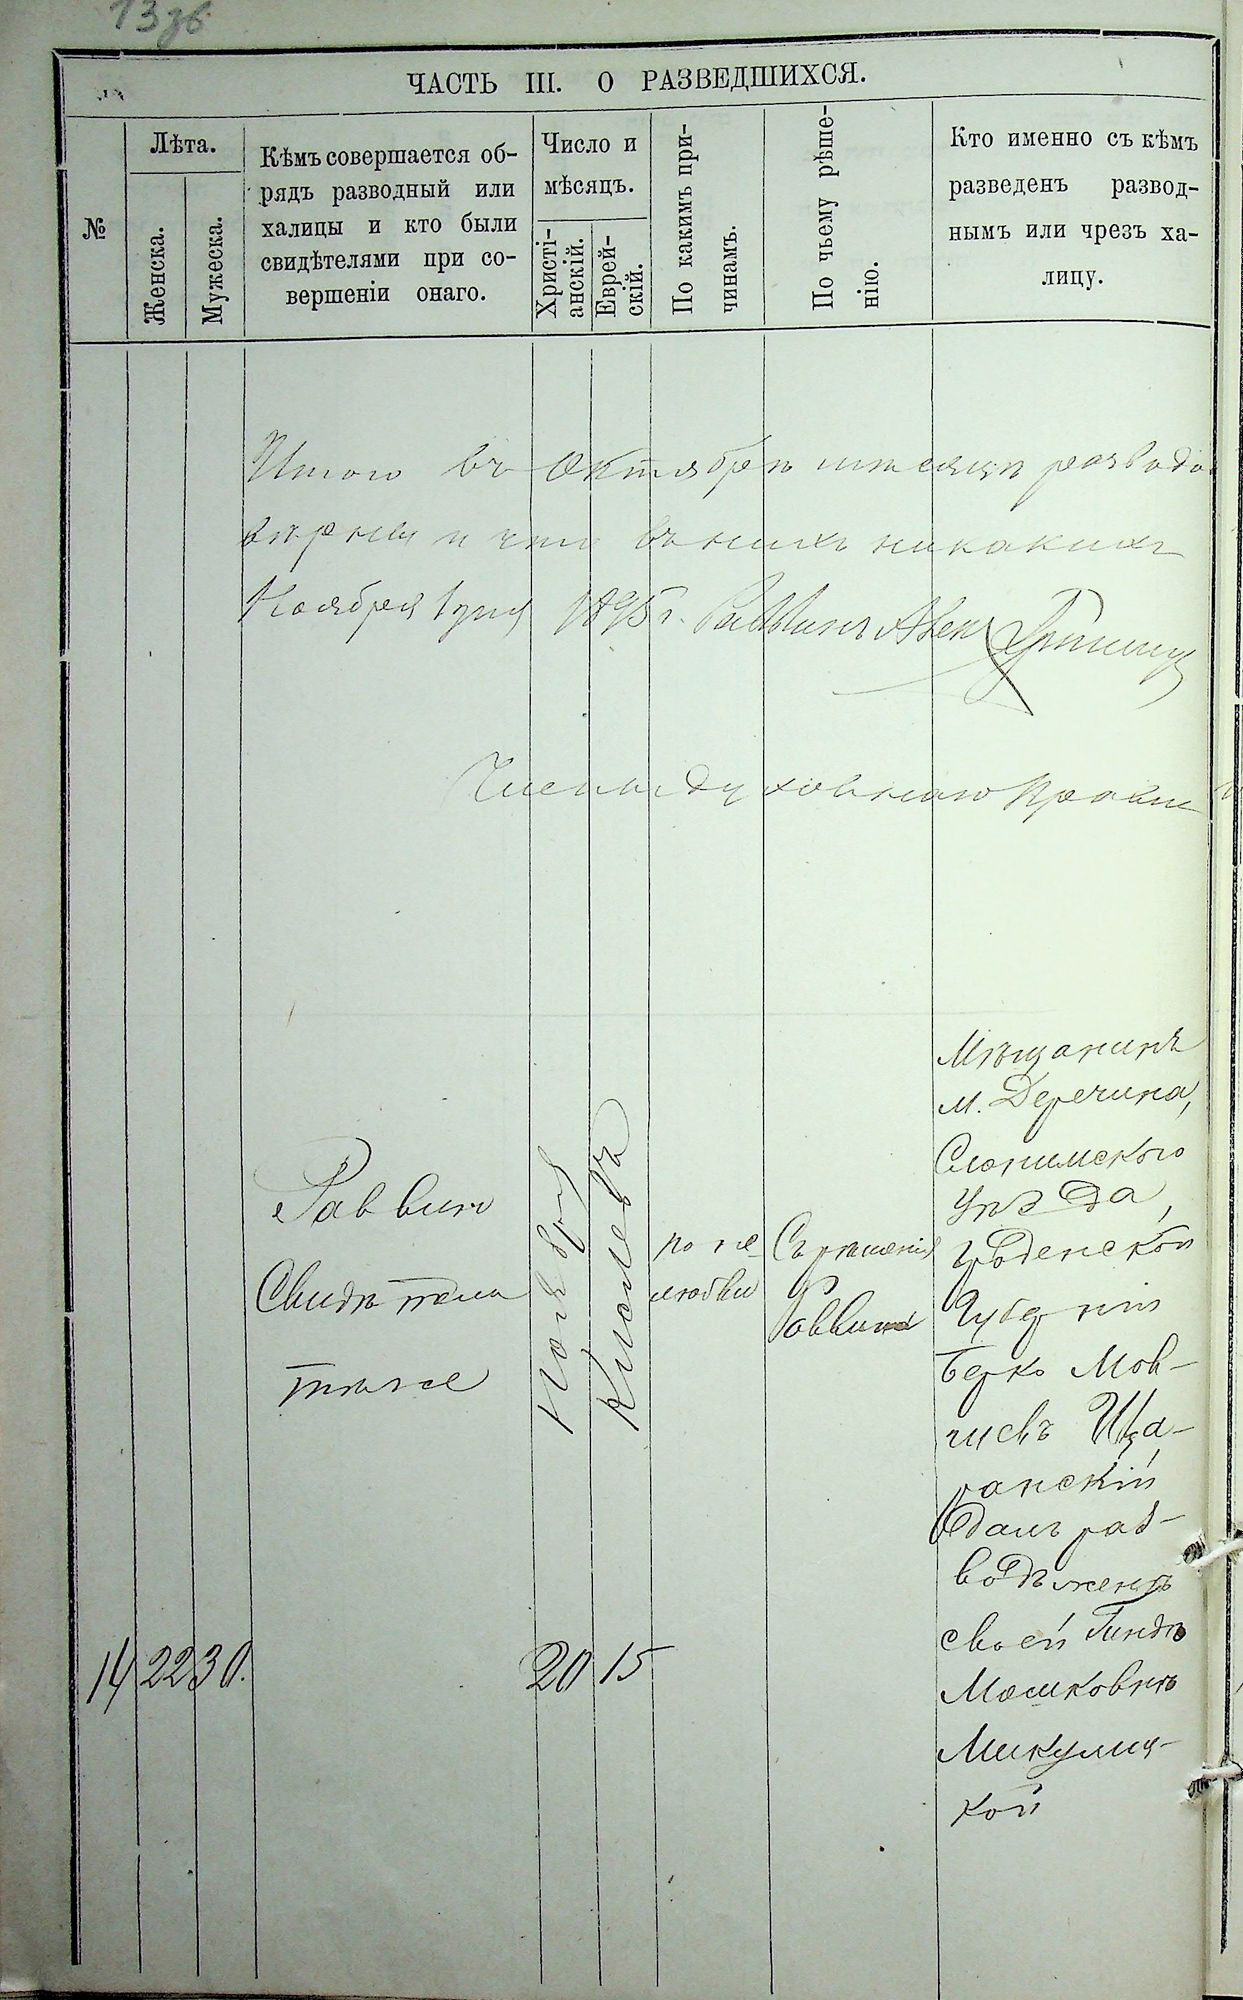 13 об
ЧАСТЬ III. О РАЗВЕДШИХСЯ.
№
Лѣта.
Женска.
Мужеска.
Кѣмъ совершается об-
рядъ разводный или
халицы и кто были
свидѣтелями при со-
вершеніи онаго.
Число и
мѣсяцъ.
Христі-
анскій.
Еврей-
скій.
По какимъ при-
чинамъ.
По чьему рѣше-
нію.
Кто именно съ кѣмъ
разведенъ развод-
нымъ или чрезъ ха-
лицу.
Итого въ Октябрѣ мѣсяцѣ разводо
вѣрны и что въ нихъ никакихъ
Ноября 1 дня 1895 г. Раввинъ
Члены духовнаго Правле
14
22
30.
Раввинъ
Свидѣтели
тѣже
Ноября
20
Кислевъ
15
по не
любви
Съ рѣшенія
Раввина
Мѣщанинъ
м. Деречина,
Слонимского
уѣзда,
Гроденской
Губерніи
Берко Мов-
шевъ Ща-
ранскій
далъ раз-
водъ женѣ
своей Гиндѣ
Мошковнѣ
Микулиц-
кой